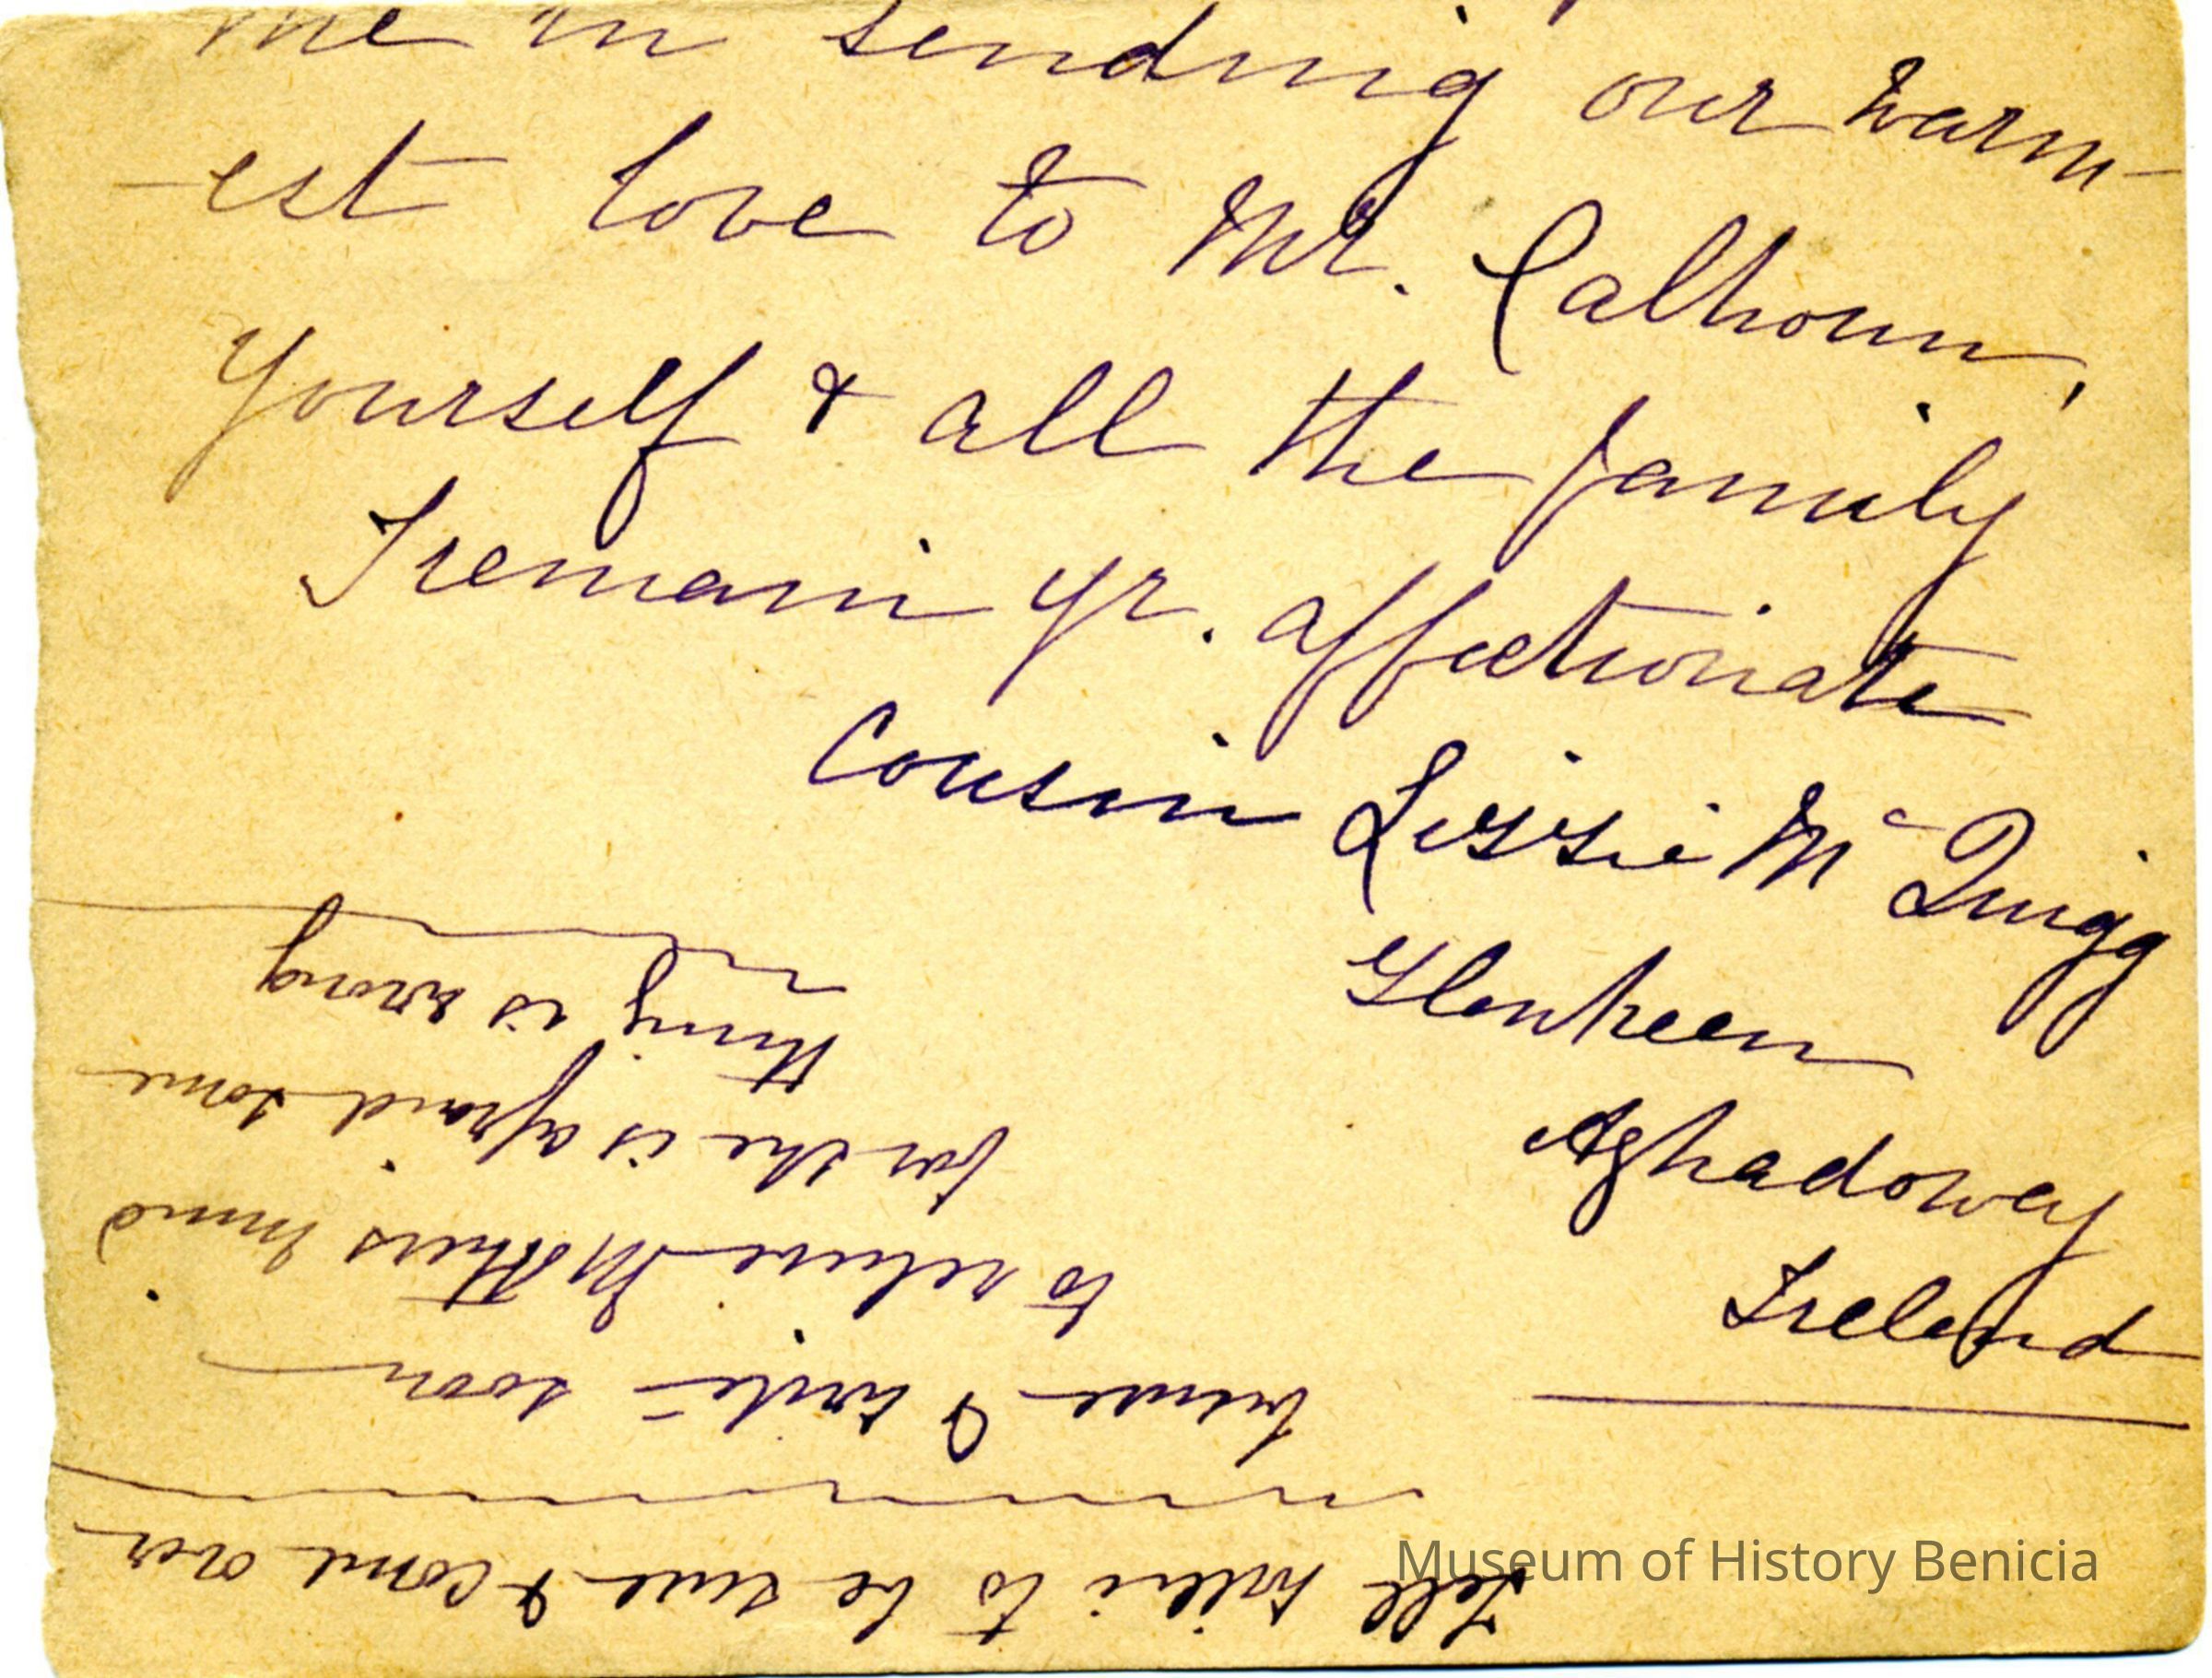 me in sending our warm-
-est love to Mr. Calhoun,
yourself & all the family
I remain yr. affectionate
Cousin Lizzie McQuigg
Glenkeen
Aghadowey
Ireland
Tell Willie to be sure & come over
be sure & write - soon
to relieve Mothers mind
for she is afraid some
thing is wrong
Museum of History Benicia